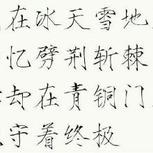 在冰天雪地
忆劈荆斩棘
却在青铜门
守着终极